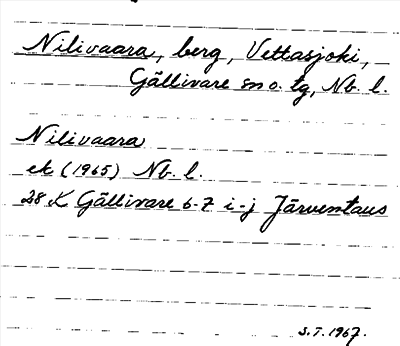 Nilivaara, berg, Vettasjoki,
Gällivare sn o. tg, Nb. l.
Nilivaara
ek (1965) Nb. l.
28 K Gällivare 6-7 i-j Järventaus
S.T. 1967.